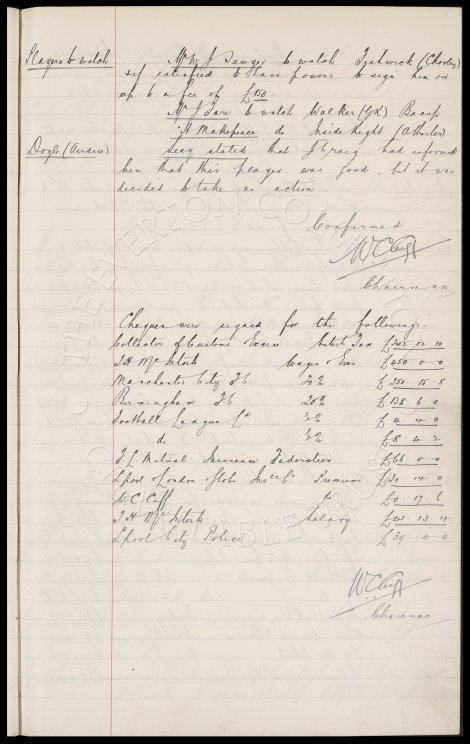 Players to watch
Mr W J Sawyer to watch Fishwick (Chorley)
& if satisfied to have powers to sign him on
up to a fee of £150.
Mr J Fare to watch Walker (GK) Bacup
" H Makepeace do Inside Right (Atherton)
Doyle (Airdrie)
Secy stated that J Craig had informed
him that this player was good, but it was
decided to take no action.
Confirmed
W.C. Cuff
Chairman
Cheques were signed for the following:-
Collector of Customs & Excise Entert Tax £ 12 . 10
T H McIntosh Wages & Exs £450 . 0 . 0
Manchester City F.C. 20% £250 . 15 . 8
Birmingham F.C. 20% £138 . 6 . 0
Football League Ld ½% £4 . 4 . 0
do ½% £8 . 4 . 2
F L Mutual Insurance Federation £66 . 0 . 0
Lpool & London & Globe Insce Co Premiums £30 . 14 . 0
W C Cuff do £0 . 17 . 6
T H McIntosh Salary £41 . 13 . 4
Lpool City Police £39 . 0 . 0
W.C. Cuff
Chairman
THE EVERTON CO